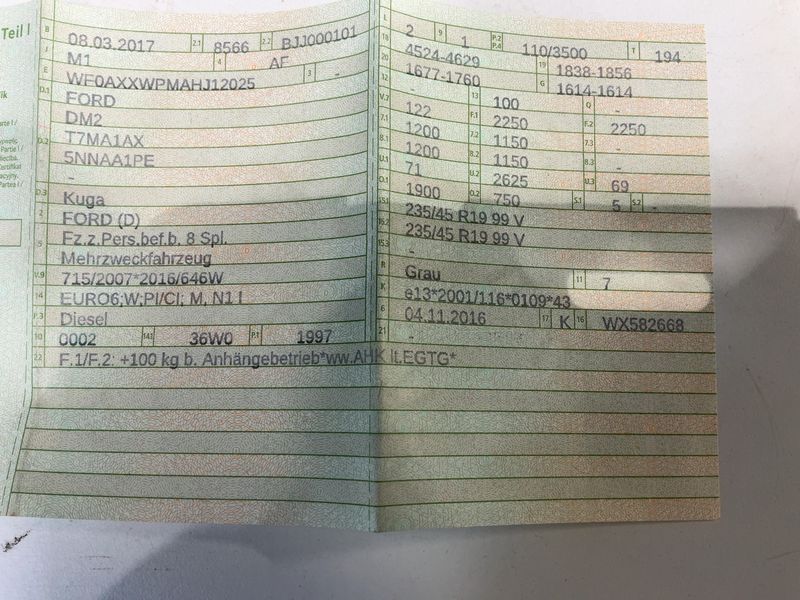 Teil I
B 08.03.2017 2.1 8566 2.2 BJJ000101
J M1 4 AF
E WF0AXXWPMAHJ12025 3 -
D.1 FORD
DM2
D.2 T7MA1AX
5NNAA1PE
-
D.3 Kuga
2 FORD (D)
5 Fz.z.Pers.bef.b. 8 Spl.
Mehrzweckfahrzeug
V.9 715/2007*2016/646W
14 EURO6;W,PI/CI; M, N1 I
P.3 Diesel
10 0002 14.1 36W0 P.1 1997
22 F.1/F.2: +100 kg b. Anhängebetrieb*ww.AHK lt.EGTG*
L 2 9 1 P.2 P.4 110/3500 T 194
18 4524-4629 19 1838-1856
20 1677-1760 G 1614-1614
12 - 13 100 Q -
V.7 122 F.1 2250 F.2 2250
7.1 1200 7.2 1150 7.3 -
8.1 1200 8.2 1150 8.3 -
U.1 71 U.2 2625 U.3 69
O.1 1900 O.2 750 S.1 5 S.2 -
15.1 235/45 R19 99 V
15.2 235/45 R19 99 V
15.3 -
R Grau 11 7
K e13*2001/116*0109*43
6 04.11.2016 17 K 16 WX582668
21 -